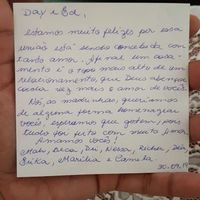 Day e Ed,
estamos muito felizes por essa
união está sendo concebida com
tanto amor. Afinal um casa-
mento é o topo mais alto de um
relacionamento, que Deus abençoe
cada vez mais o amor de vocês.
Nós, as madrinhas, queríamos
de alguma forma homenagear
vocês, esperamos que gostem, pois
tudo foi feito com muito amor.
Amamos vocês!
Érika, Marília e Camila
30.09.17